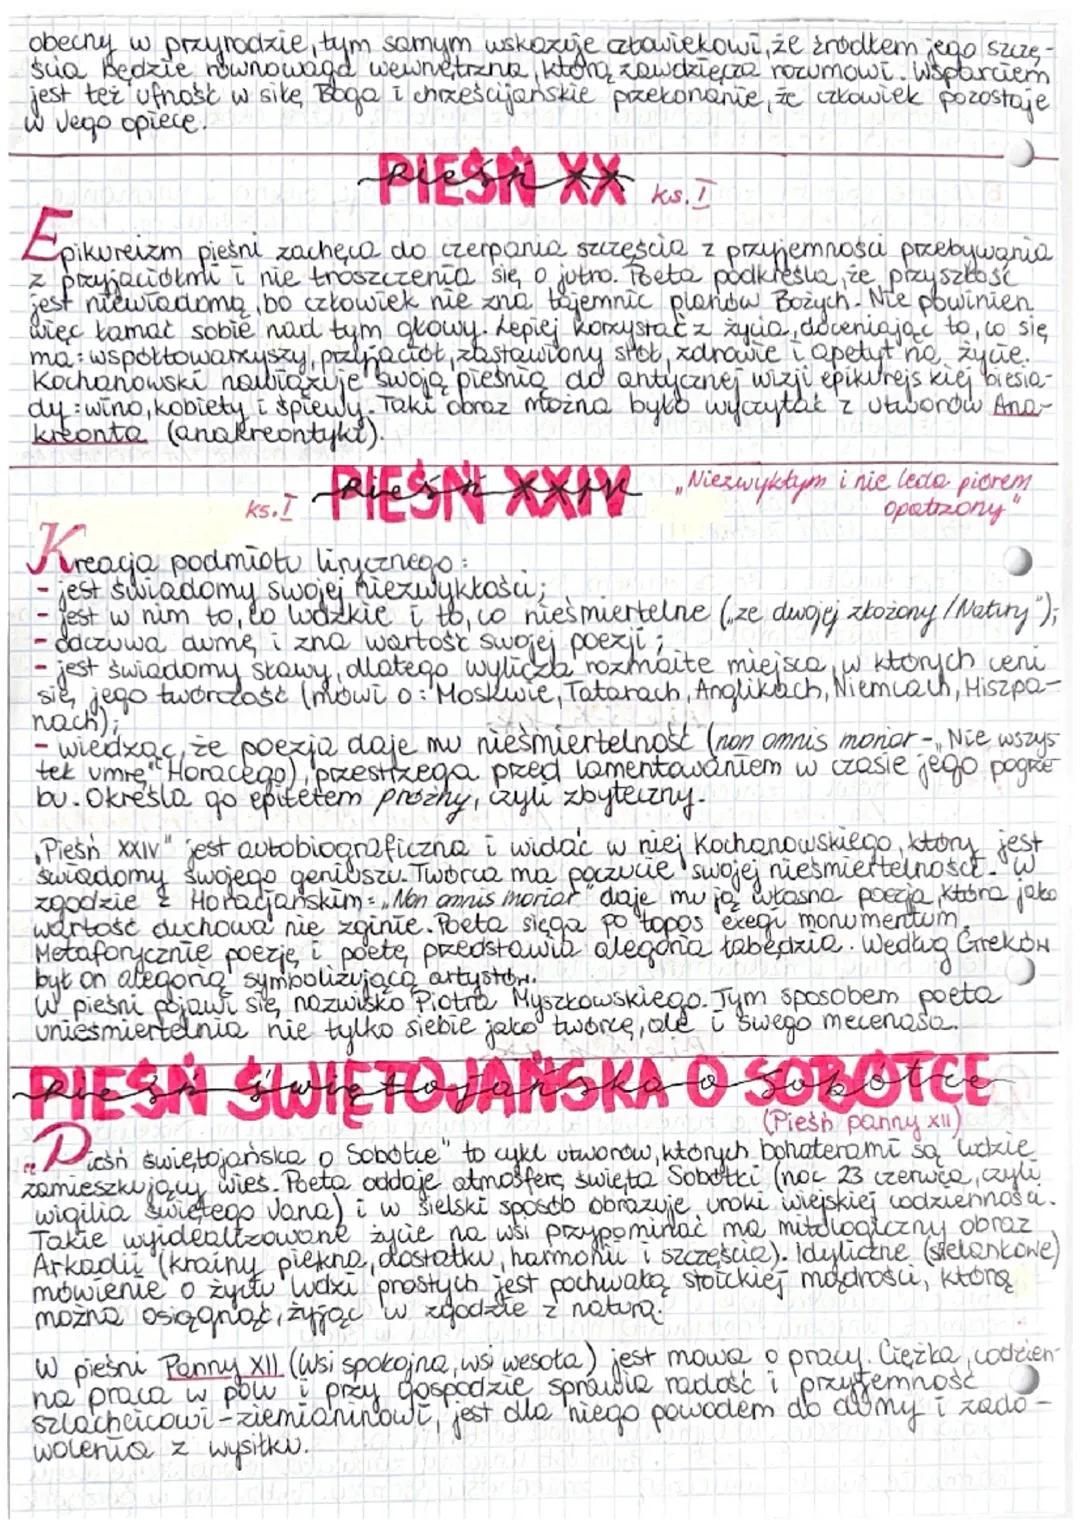 obecny w przyrodzie, tym samym wskazuje człowiekowi, że źródłem jego szczę-
ścia będzie równowaga wewnętrzna, którą zawdzięcza rozumowi. Wsparciem
jest też ufność w siłę Boga i chrześcijańskie przekonanie, że człowiek pozostaje
w Jego opiece.
PIEŚŃ XX ks. I
Epikureizm pieśni zachęca do czerpania szczęścia z przyjemności przebywania
z przyjaciółmi i nie troszczenia się o jutro. Poeta podkreśla, że przyszłość
jest niewiadomą, bo człowiek nie zna tajemnic planów Bożych. Nie powinien
więc łamać sobie nad tym głowy. Lepiej korzystać z życia, doceniając to, co się
ma: współtowarzyszy, przyjaciół, zastawiony stół, zdrowie i apetyt na życie.
Kochanowski nawiązuje swoją pieśnią do antycznej wizji epikurejskiej biesia-
dy: wino, kobiety i śpiewy. Taki obraz można było wyczytać z utworów Ana-
kreonta (anakreontyki).
ks. I PIEŚŃ XXIV „Niezwykłym i nie leda piórem
opatrzony"
Kreacja podmiotu lirycznego:
- jest świadomy swojej niezwykłości;
- jest w nim to, co ludzkie i to, co nieśmiertelne („ze dwojej złożony / Natury");
- odczuwa dumę i zna wartość swojej poezji;
- jest świadomy sławy, dlatego wylicza rozmaite miejsca, w których ceni
się jego twórczość (mówi o: Moskwie, Tatarach, Anglikach, Niemcach, Hiszpa-
nach);
- wiedząc, że poezja daje mu nieśmiertelność (non omnis moriar - „Nie wszys
tek umrę" Horacego), przestrzega przed lamentowaniem w czasie jego pogrze
bu. Określa go epitetem próżny, czyli zbyteczny.
„Pieśń XXIV" jest autobiograficzna i widać w niej Kochanowskiego, który jest
świadomy swojego geniuszu. Twórca ma poczucie swojej nieśmiertelności. W
zgodzie z Horacjańskim: „Non omnis moriar" daje mu ją własna poezja, która jako
wartość duchowa nie zginie. Poeta sięga po topos exegi monumentum.
Metaforycznie poezję i poetę przedstawia alegoria łabędzia. Według Greków
był on alegorią symbolizującą artystów.
W pieśni pojawi się nazwisko Piotra Myszkowskiego. Tym sposobem poeta
unieśmiertelnia nie tylko siebie jako twórcę, ale i swego mecenasa.
PIEŚŃ ŚWIĘTOJAŃSKA O SOBÓTCE
(Pieśń panny XII)
„Pieśń świętojańska o Sobótce" to cykl utworów, których bohaterami są ludzie
zamieszkujący wieś. Poeta oddaje atmosferę święta Sobótki (noc 23 czerwca, czyli
wigilia świętego Jana) i w sielski sposób obrazuje uroki wiejskiej codzienności.
Takie wyidealizowane życie na wsi przypominać ma mitologiczny obraz
Arkadii (krainy piękna, dostatku, harmonii i szczęścia). Idylliczne (sielankowe)
mówienie o życiu ludzi prostych jest pochwałą stoickiej mądrości, którą
można osiągnąć, żyjąc w zgodzie z naturą.
W pieśni Panny XII (Wsi spokojna, wsi wesoła) jest mowa o pracy. Ciężka, codzien-
na praca w polu i przy gospodzie sprawia radość i przyjemność
szlachcicowi-ziemianinowi, jest dla niego powodem do dumy i zado-
wolenia z wysiłku.